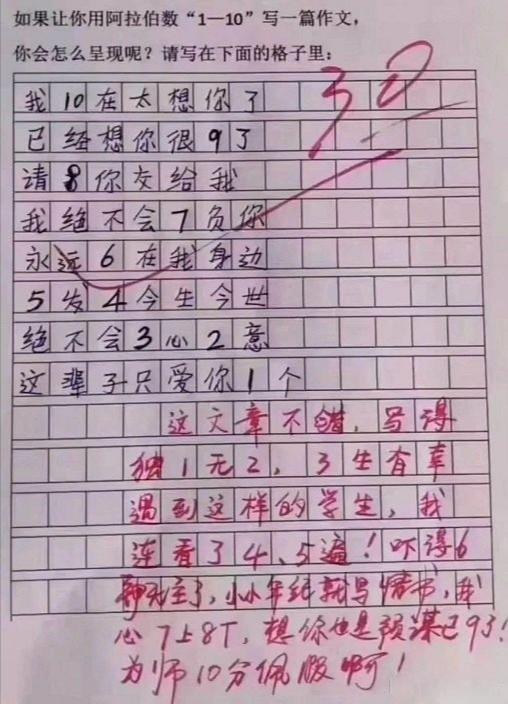 如果让你用阿拉伯数“1—10”写一篇作文，
你会怎么呈现呢？请写在下面的格子里：
30
我10在太想你了
已经想你很9了
请8你交给我
我绝不会7负你
永远6在我身边
5发4今生今世
绝不会3心2意
这辈子只爱你1个
这文章不错，写得
独1无2，3生有幸
遇到这样的学生，我
连看了4、5遍！吓得6
神无主了，小小年纪就写情书，我
心7上8下，想你也是预谋已9了！
为师10分佩服啊！